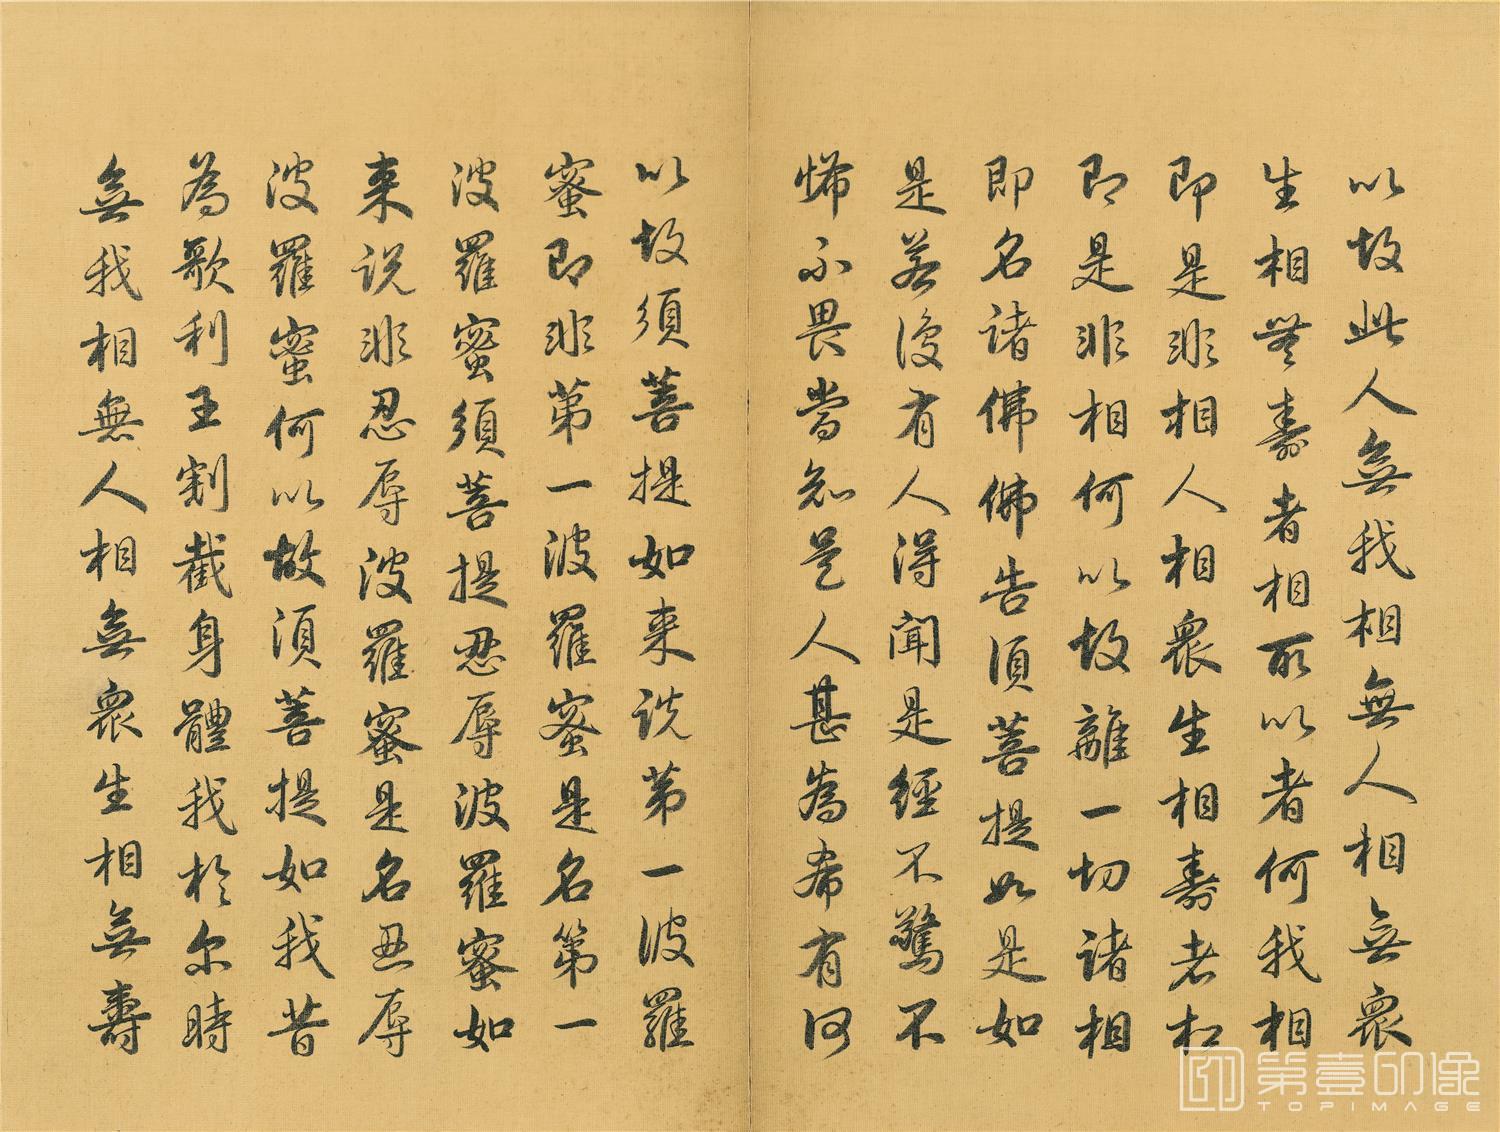 以故此人無我相無人相無衆
生相無壽者相所以者何我相
即是非相人相衆生相壽者相
即是非相何以故離一切諸相
即名諸佛佛告須菩提如是如
是若復有人得聞是經不驚不
怖不畏當知是人甚為希有何
以故須菩提如来說第一波羅
蜜即非第一波羅蜜是名第一
波羅蜜須菩提忍辱波羅蜜如
来説非忍辱波羅蜜是名忍辱
波羅蜜何以故須菩提如我昔
為歌利王割截身體我於尔時
無我相無人相無衆生相無壽
第壹印像
TOPIMAGE